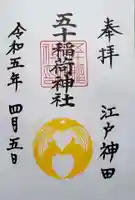 奉拝
江戸神田
五十稲荷神社
令和五年 四月五日